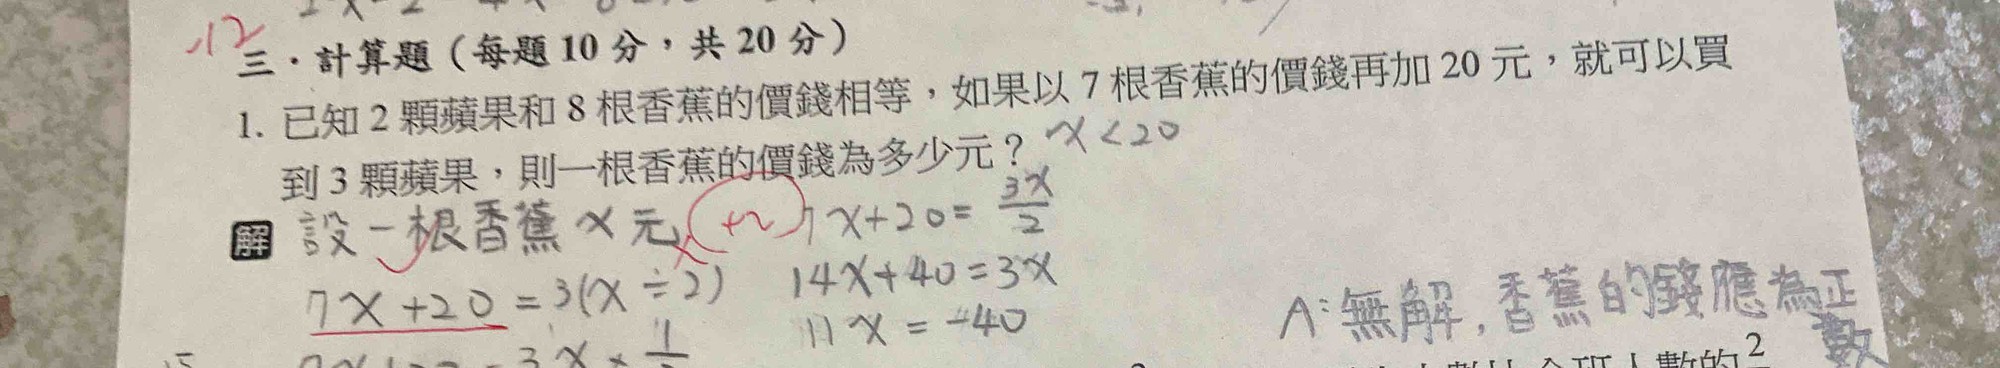 -12
三．計算題（每題 10 分，共 20 分）
1. 已知 2 顆蘋果和 8 根香蕉的價錢相等，如果以 7 根香蕉的價錢再加 20 元，就可以買
到 3 顆蘋果，則一根香蕉的價錢為多少元？ x<20
解 設一根香蕉 x 元 +2 7x+20=3x/2
7x+20=3(x÷2) 14x+40=3x
11x=-40
A:無解,香蕉的錢應為正
數